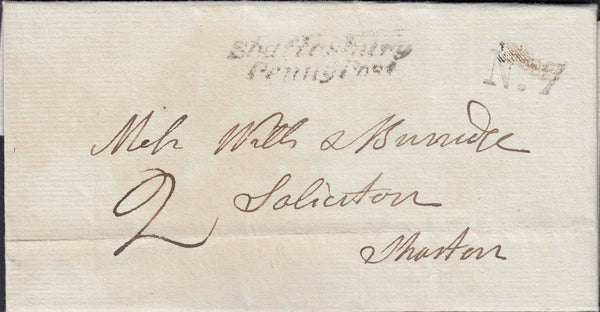 Shaftesbury
Penny Post
No. 7
Messrs Wills & Burridge
2
Solicitors
Shaston